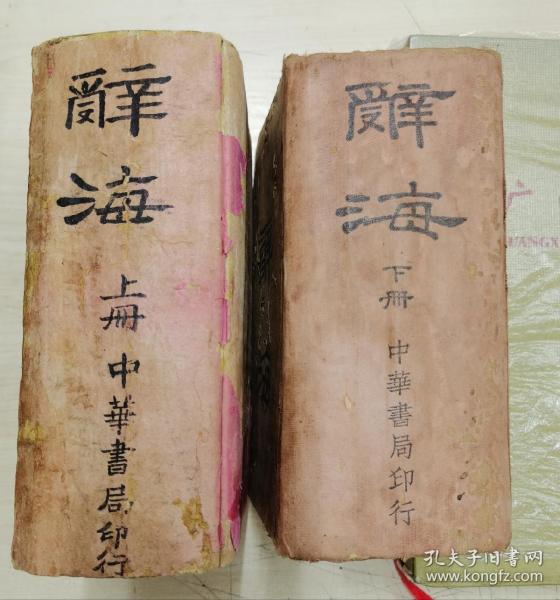 辭海
上冊
中華書局印行
辭海
下冊
中華書局印行
广
UANGX
孔夫子旧书网
www.kongfz.com